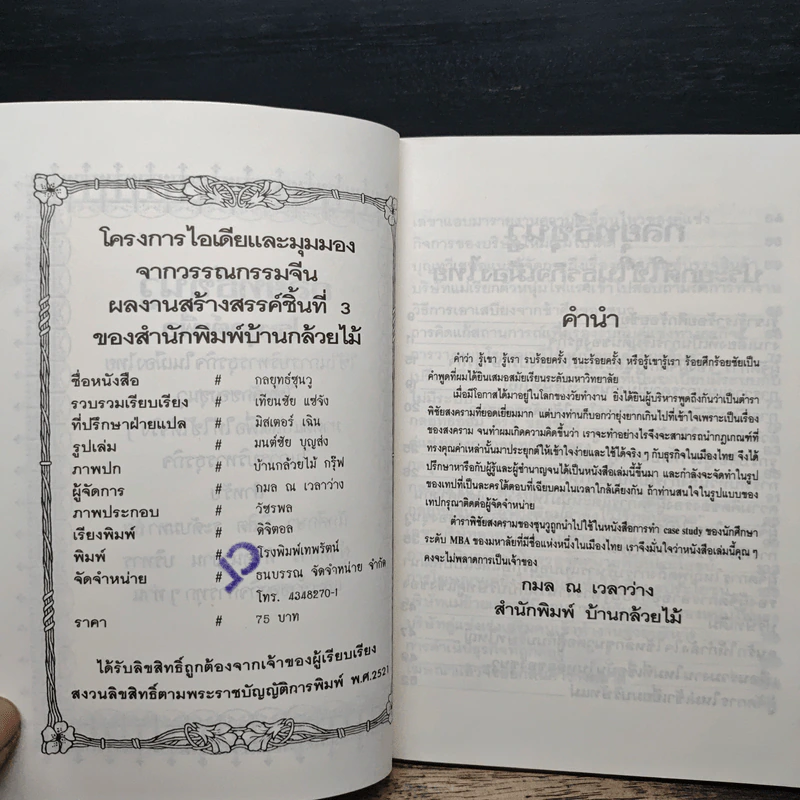 โครงการไอเดียและมุมมอง
จากวรรณกรรมจีน
ผลงานสร้างสรรค์ชิ้นที่ 3
ของสำนักพิมพ์บ้านกล้วยไม้
ชื่อหนังสือ # กลยุทธ์ซุนวู
รวบรวมเรียบเรียง # เทียนชัย แซ่จัง
ที่ปรึกษาฝ่ายแปล # มิสเตอร์ เฉิน
รูปเล่ม # มนต์ชัย บุญส่ง
ภาพปก # บ้านกล้วยไม้ กรุ๊ฟ
ผู้จัดการ # กมล ณ เวลาว่าง
ภาพประกอบ # วัชรพล
เรียงพิมพ์ # ดิจิตอล
พิมพ์ # โรงพิมพ์เทพรัตน์
จัดจำหน่าย # ธนบรรณ จัดจำหน่าย จำกัด
โทร. 4348270-1
ราคา # 75 บาท
ได้รับลิขสิทธิ์ถูกต้องจากเจ้าของผู้เรียบเรียง
สงวนลิขสิทธิ์ตามพระราชบัญญัติการพิมพ์ พ.ศ.2521
คำนำ
คำว่า รู้เขา รู้เรา รบร้อยครั้ง ชนะร้อยครั้ง หรือรู้เขารู้เรา ร้อยศึกร้อยชัยเป็น
คำพูดที่ผมได้ยินเสมอสมัยเรียนระดับมหาวิทยาลัย
เมื่อมีโอกาสได้มาอยู่ในโลกของวัยทำงาน ยิ่งได้ยินผู้บริหารพูดถึงกันว่าเป็นตำรา
พิชัยสงครามที่ยอดเยี่ยมมาก แต่บางท่านก็บอกว่ายุ่งยากเกินไปที่เข้าใจเพราะเป็นเรื่อง
ของสงคราม จนทำผมเกิดความคิดขึ้นว่า เราจะทำอย่างไรจึงจะสามารถนำกฎเกณฑ์ที่
ทรงคุณค่าเหล่านั้นมาประยุกต์ให้เข้าใจง่ายและใช้ได้จริง ๆ กับธุรกิจในเมืองไทย จึงได้
ปรึกษาหารือกับผู้รู้และผู้ชำนาญจนได้เป็นหนังสือเล่มนี้ขึ้นมา และกำลังจะจัดทำในรูป
ของเทปที่เป็นละครโต้ตอบที่เฉียบคมในเวลาใกล้เคียงกัน ถ้าท่านสนใจในรูปแบบของ
เทปกรุณาติดต่อผู้จัดจำหน่าย
ตำราพิชัยสงครามของซุนวูถูกนำไปใช้ในหนังสือการทำ case study ของนักศึกษา
ระดับ MBA ของมหาลัยที่มีชื่อแห่งหนึ่งในเมืองไทย เราจึงมั่นใจว่าหนังสือเล่มนี้คุณ ๆ
คงจะไม่พลาดการเป็นเจ้าของ
กมล ณ เวลาว่าง
สำนักพิมพ์ บ้านกล้วยไม้